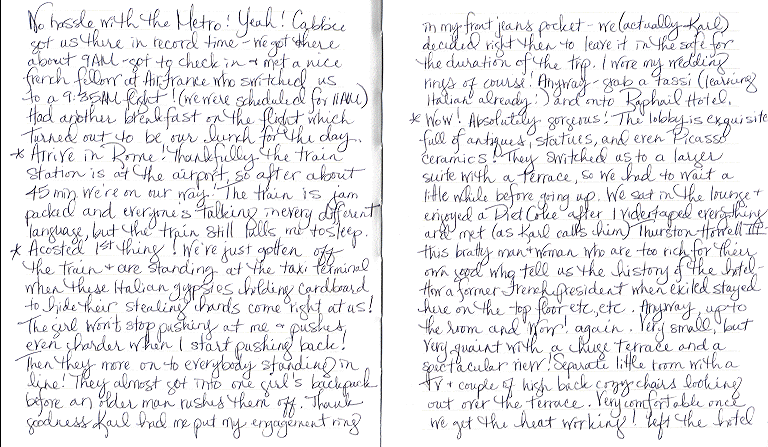 No hassle with the Metro! Yeah! Cabbie
got us there in record time - we got there
about 9AM - got to check in + met a nice
french fellow at Air France who switched us
to a 9:35AM flight! (we were scheduled for 11AM)
Had another breakfast on the flight which
turned out to be our lunch for the day.
* Arrive in Rome! Thankfully the train
station is at the airport, so after about
45 min we're on our way! The train is jam
packed and everyone's talking in every different
language, but the train still lulls me to sleep.
* Acosted 1st thing! We've just gotten off
the train + are standing at the taxi terminal
when these Italian gypsies holding cardboard
to hide their stealing hands come right at us!
The girl won't stop pushing at me + pushes
even harder when I start pushing back!
Then they move on to everybody standing in
line! They almost got into one girl's backpack
before an older man rushes them off. Thank
goodness Karl had me put my engagement ring
in my front jeans pocket - we (actually Karl)
decided right then to leave it in the safe for
the duration of the trip. I wore my wedding
rings of course! Anyway - grab a tassi (learning
Italian already :) and onto Raphail Hotel.
* Wow! Absolutely gorgeous! The lobby is exquisite
full of antiques, statues, and even Picasso
ceramics! They switched us to a larger
suite with a terrace, so we had to wait a
little while before going up. We sat in the lounge +
enjoyed a Diet Coke after I videotaped everything
and met (as Karl calls him) Thurston Howell III -
this bratty man + woman who are too rich for their
own good who tell us the history of the hotel -
how a former french president when exiled stayed
here on the top floor etc, etc. Anyway, up to
the room and Wow! again. Very small, but
very quaint with a huge terrace and a
spectacular view! Separate little room with a
TV + couple of high back cozy chairs looking
out over the terrace. Very comfortable once
we get the heat working! Left the hotel